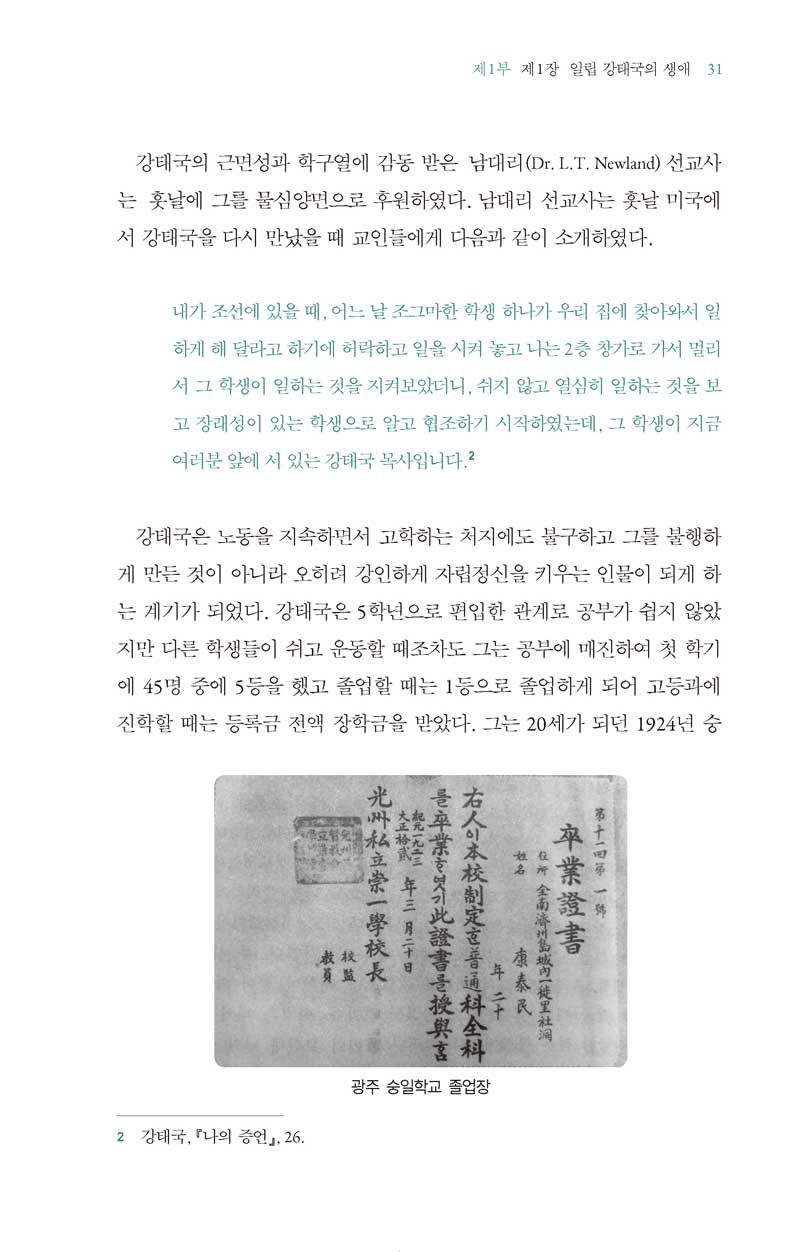 제1부 제1장 일립 강태국의 생애 31
강태국의 근면성과 학구열에 감동 받은 남대리(Dr. L.T. Newland) 선교사
는 훗날에 그를 물심양면으로 후원하였다. 남대리 선교사는 훗날 미국에
서 강태국을 다시 만났을 때 교인들에게 다음과 같이 소개하였다.
내가 조선에 있을 때, 어느 날 조그마한 학생 하나가 우리 집에 찾아와서 일
하게 해 달라고 하기에 허락하고 일을 시켜 놓고 나는 2층 창가로 가서 멀리
서 그 학생이 일하는 것을 지켜보았더니, 쉬지 않고 열심히 일하는 것을 보
고 장래성이 있는 학생으로 알고 협조하기 시작하였는데, 그 학생이 지금
여러분 앞에 서 있는 강태국 목사입니다.2
강태국은 노동을 지속하면서 고학하는 처지에도 불구하고 그를 불행하
게 만든 것이 아니라 오히려 강인하게 자립정신을 키우는 인물이 되게 하
는 계기가 되었다. 강태국은 5학년으로 편입한 관계로 공부가 쉽지 않았
지만 다른 학생들이 쉬고 운동할 때조차도 그는 공부에 매진하여 첫 학기
에 45명 중에 5등을 했고 졸업할 때는 1등으로 졸업하게 되어 고등과에
진학할 때는 등록금 전액 장학금을 받았다. 그는 20세가 되던 1924년 숭
第十一回第一號
卒業證書
住所 全南濟州島城內一徒里社洞
姓名 康泰民
年二十
右人이本校制定한普通科全科
를卒業하엿기此證書를授與홈
紀元一九二三
大正拾貳 年三月二十日
光州私立崇一學校長
校監
敎員
광주 숭일학교 졸업장
2 강태국, 『나의 증언』, 26.